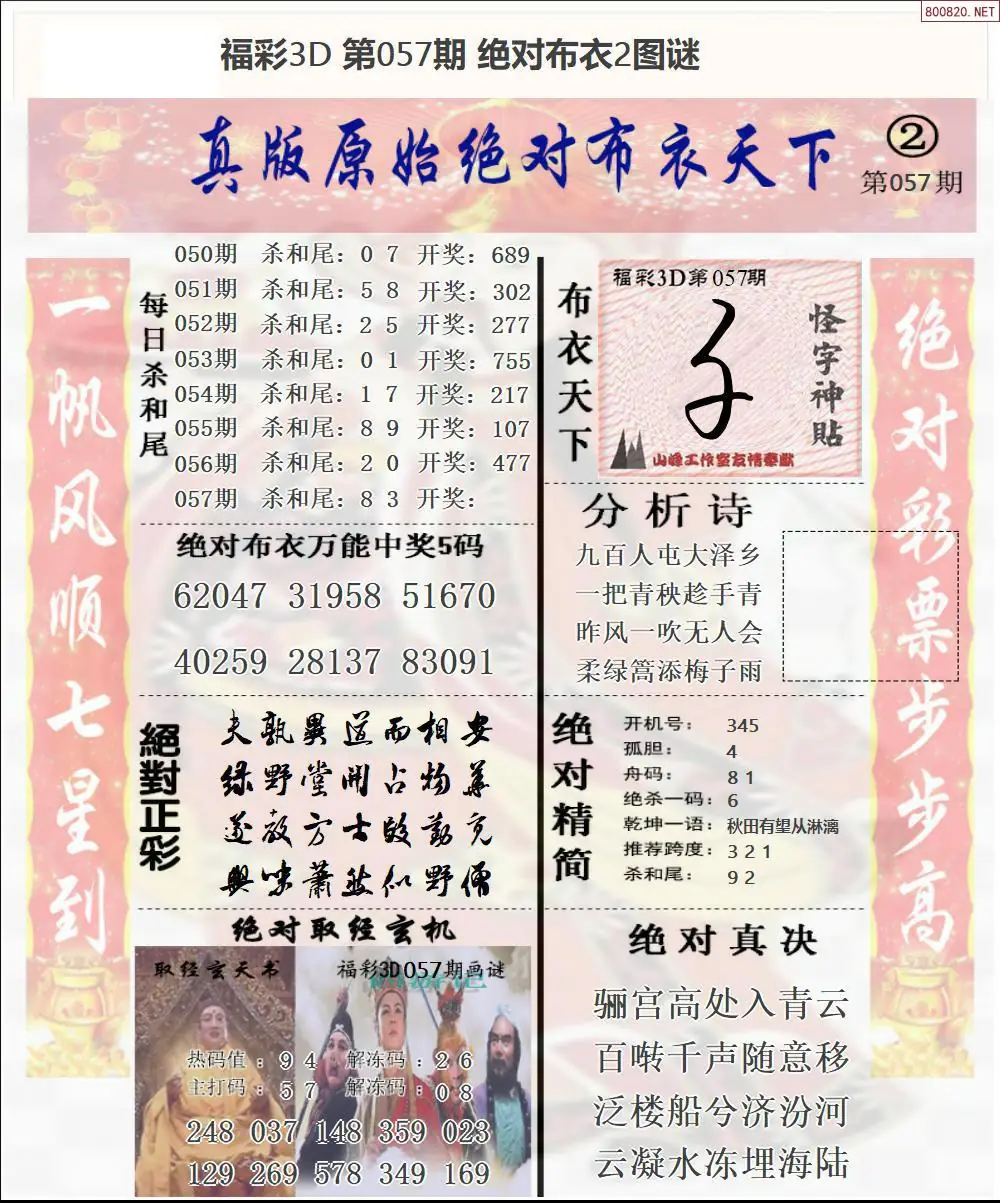 800820.NET
福彩3D 第057期 绝对布衣2图谜
真版原始绝对布衣天下
②
第057期
一帆风顺七星到
每日杀和尾
050期 杀和尾：0 7 开奖：689
051期 杀和尾：5 8 开奖：302
052期 杀和尾：2 5 开奖：277
053期 杀和尾：0 1 开奖：755
054期 杀和尾：1 7 开奖：217
055期 杀和尾：8 9 开奖：107
056期 杀和尾：2 0 开奖：477
057期 杀和尾：8 3 开奖：
绝对布衣万能中奖5码
62047 31958 51670
40259 28137 83091
絕對正彩
夫孰異道而相安
绿野堂開占物華
遂教方士殷勤觅
興味蕭然似野僧
绝对取经玄机
取经玄天书
福彩3D057期画谜
热码值：9 4 解冻码：2 6
主打码：5 7 解冻码：0 8
248 037 148 359 023
129 269 578 349 169
布衣天下
福彩3D第057期
怪字神貼
山峰工作室友情奉献
分析诗
九百人屯大泽乡
一把青秧趁手青
昨风一吹无人会
柔绿篙添梅子雨
绝对精简
开机号：345
孤胆：4
舟码：8 1
绝杀一码：6
乾坤一语：秋田有望从淋漓
推荐跨度：3 2 1
杀和尾：9 2
绝对真决
骊宫高处入青云
百啭千声随意移
泛楼船兮济汾河
云凝水冻埋海陆
绝对彩票步步高